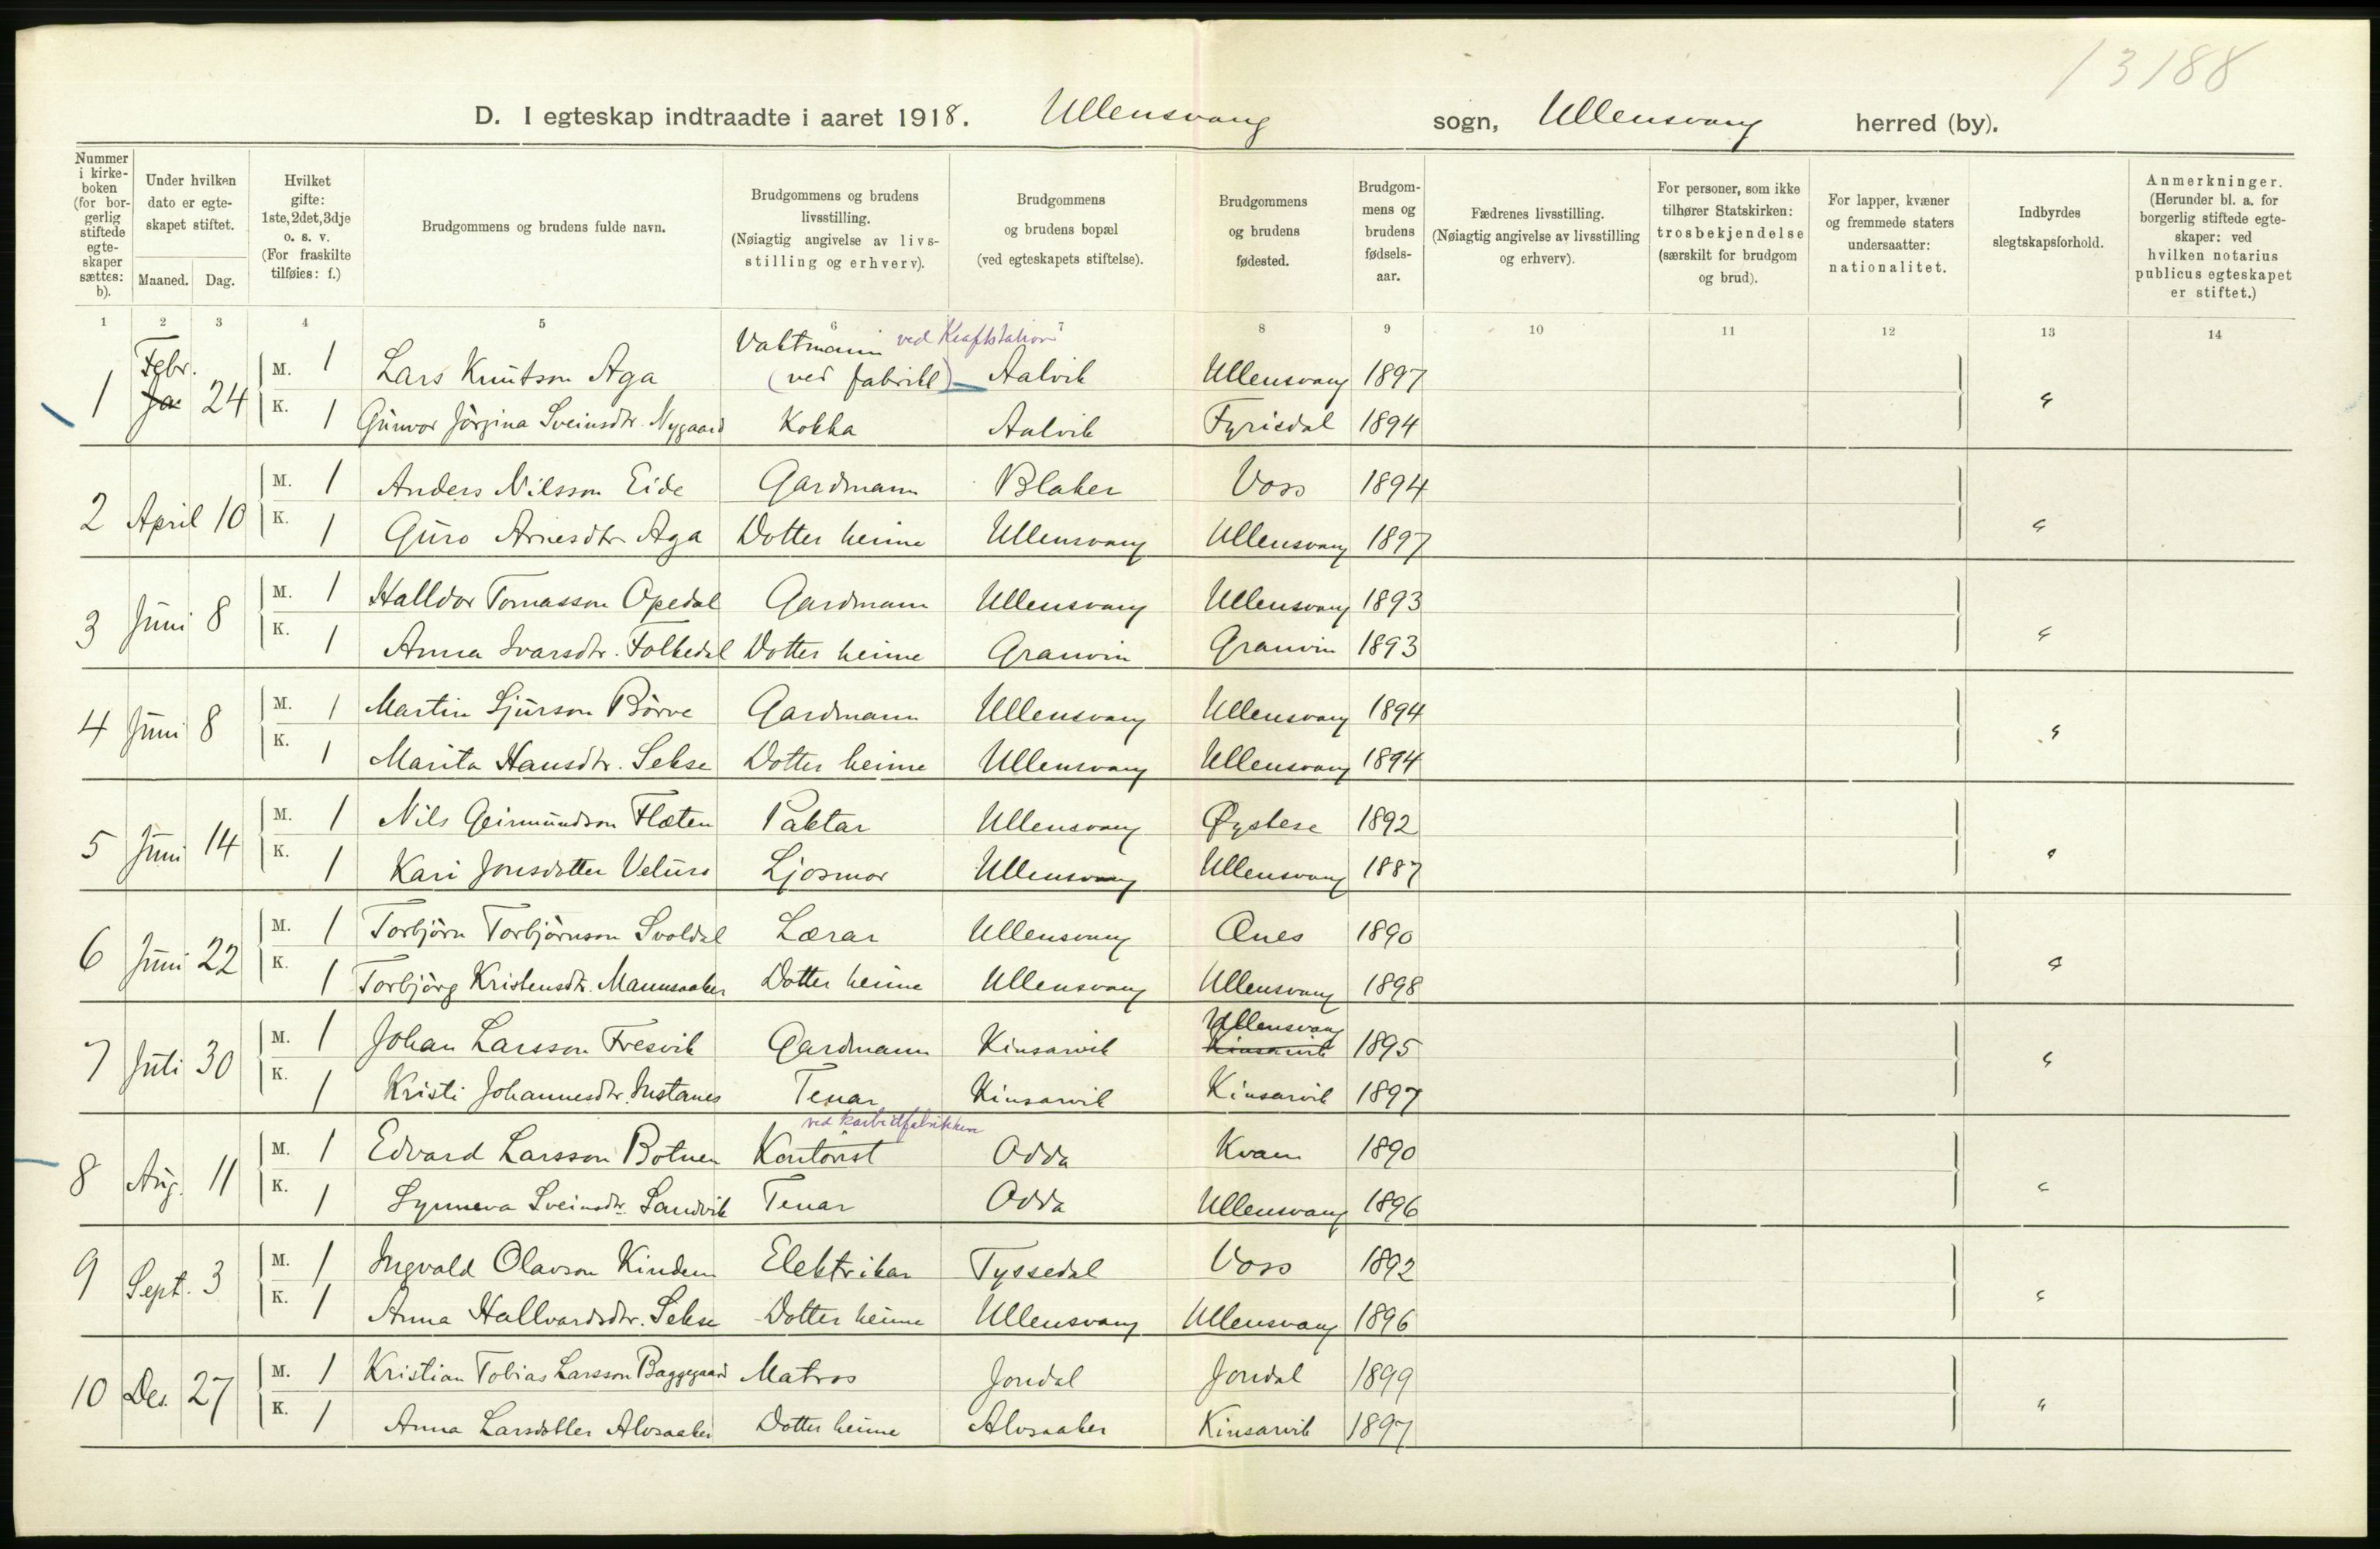 13188
D. I egteskap indtraadte i aaret 1918. Ullensvang sogn, Ullensvang herred (by).
Nummer i kirke-boken (for bor-gerlig stiftede egte-skaper sættes: b).
Under hvilken dato er egte-skapet stiftet.
Maaned. Dag.
Hvilket gifte: 1ste, 2det, 3dje o. s. v. (For fraskilte tilføies: f.)
Brudgommens og brudens fulde navn.
Brudgommens og brudens livsstilling. (Nøiagtig angivelse av livs-stilling og erhverv).
Brudgommens og brudens bopæl (ved egteskapets stiftelse).
Brudgommens og brudens fødested.
Brudgom-mens og brudens fødsels-aar.
Fædrenes livsstilling. (Nøiagtig angivelse av livsstilling og erhverv).
For personer, som ikke tilhører Statskirken: trosbekjendelse (særskilt for brudgom og brud).
For lapper, kvæner og fremmede staters undersaatter: nationalitet.
Indbyrdes slegtskapsforhold.
Anmerkninger. (Herunder bl. a. for borgerlig stiftede egte-skaper: ved hvilken notarius publicus egteskapet er stiftet.)
1 2 3 4 5 6 7 8 9 10 11 12 13 14
Vaktmann ved Kraftstation
1 Febr. Ja 24 M. 1 Lars Knutson Aga (ved fabrikk) Aalvik Ullensvang 1897 "
K. 1 Gunvor Jörgina Sveinsdtr. Nygaard Kokka Aalvik Fyrisdal 1894
2 April 10 M. 1 Anders Nilsson Eide Gardmann Blaker Voss 1894 "
K. 1 Guro Arnesdtr Aga Dotter heime Ullensvang Ullensvang 1897
3 Juni 8 M. 1 Halldor Tomasson Opedal Gardmann Ullensvang Ullensvang 1893 "
K. 1 Anna Ivarsdtr. Folkedal Dotter heime Granvin Granvin 1893
4 Juni 8 M. 1 Martin Sjurson Börve Gardmann Ullensvang Ullensvang 1894 "
K. 1 Marita Hansdtr. Sekse Dotter heime Ullensvang Ullensvang 1894
5 Juni 14 M. 1 Nils Geirmundson Flæten Paktar Ullensvang Øystese 1892 "
K. 1 Kari Jonsdotter Velure Ljosmor Ullensvang Ullensvang 1887
6 Juni 22 M. 1 Torbjörn Torbjörnson Svoldal Lærar Ullensvang Ænes 1890 "
K. 1 Torbjörg Kristensdtr. Mannsaaker Dotter heime Ullensvang Ullensvang 1898
Ullensvang
7 Juli 30 M. 1 Johan Larsson Fresvik Gardmann Kinsarvik Kinsarvik 1895 "
K. 1 Kristi Johannesdtr. Instanes Tenar Kinsarvik Kinsarvik 1897
ved karbidfabrikken
8 Aug. 11 M. 1 Edvard Larsson Botnen Kontorist Odda Kvam 1890 "
K. 1 Synneva Sveinsdtr. Sandvik Tenar Odda Ullensvang 1896
9 Sept. 3 M. 1 Ingvald Olavson Kindem Elektrikar Tyssedal Voss 1892 "
K. 1 Anna Hallvardsdtr. Sekse Dotter heime Ullensvang Ullensvang 1896
10 Des. 27 M. 1 Kristian Tobias Larsson Baggegaard Matros Jondal Jondal 1899 "
K. 1 Anna Larsdotter Alvsaaker Dotter heime Alvsaaker Kinsarvik 1897